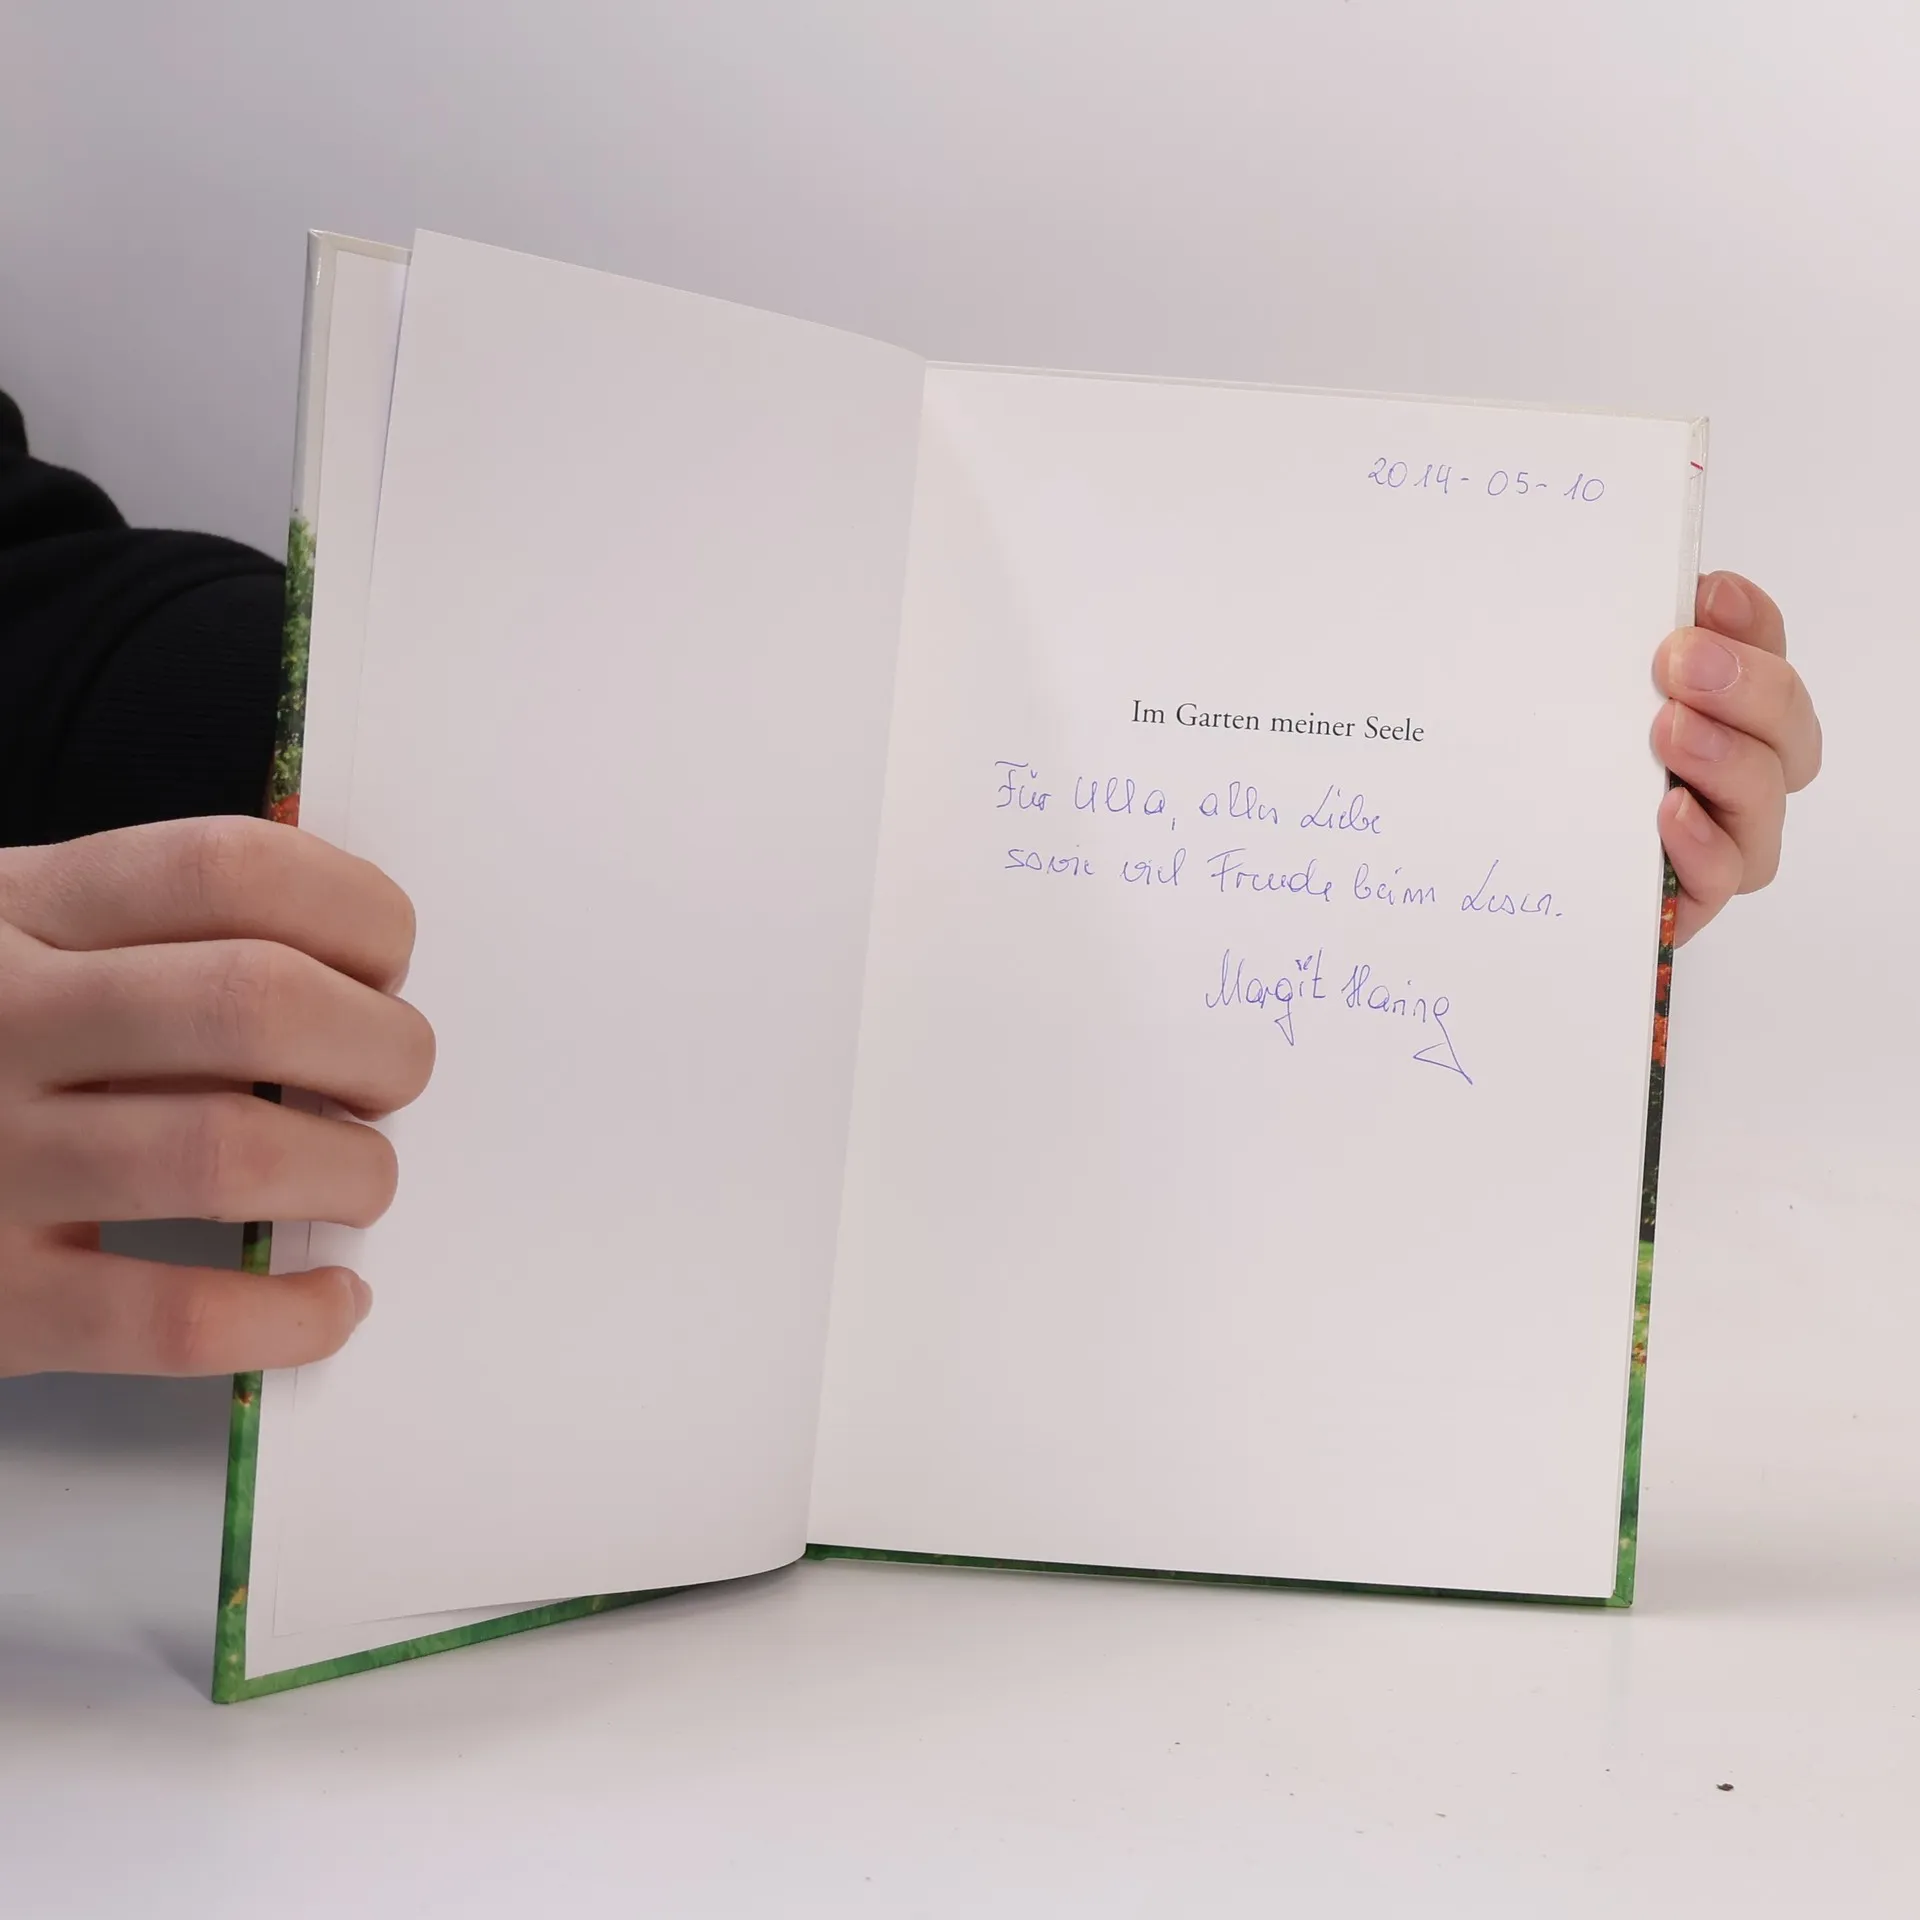 2014-05-10
Im Garten meiner Seele
Für Ulla, alles Liebe
sowie viel Freude beim Lesen.
Margit Haring